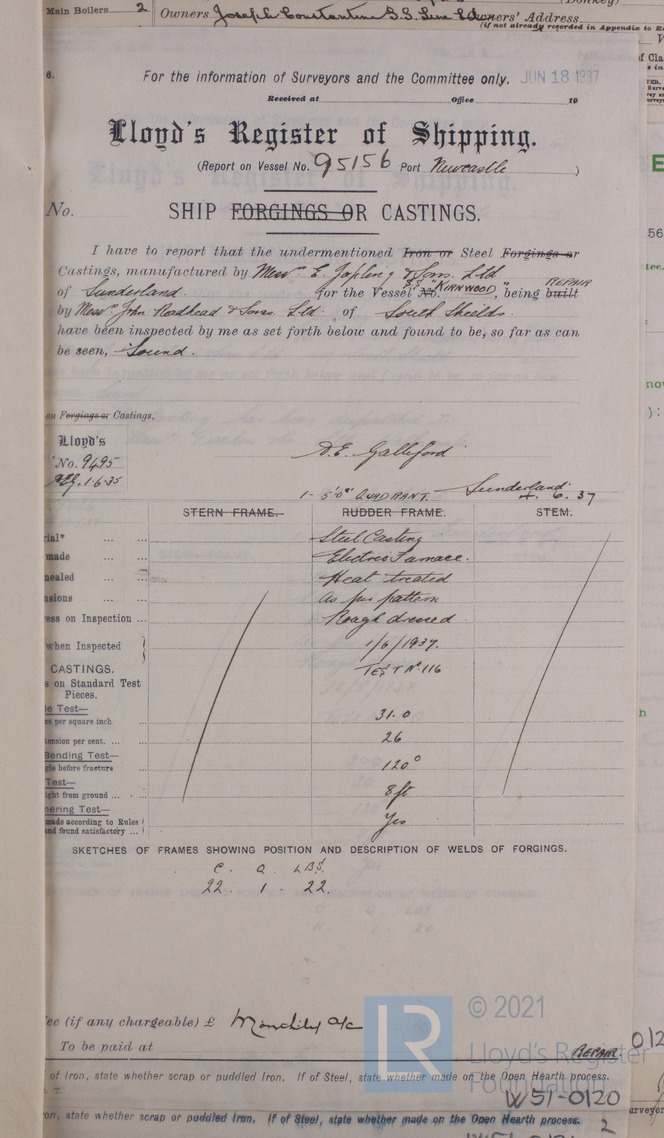 Main Boilers 2 Owners Joseph Constantine S.S. Line Ltd Owners' Address
(if not already recorded in Appendix to
6.
For the information of Surveyors and the Committee only. JUN 18 1937
Received at Office 19
Lloyd's Register of Shipping.
(Report on Vessel No. 95156 Port Newcastle )
No. SHIP FORGINGS OR CASTINGS.
I have to report that the undermentioned Iron or Steel Forgings or
Castings, manufactured by Messrs E. Jopling & Sons. Ltd
of Sunderland. for the Vessel No. S.S. "KIRNWOOD", being built REPAIR
by Messrs John Readhead & Sons Ltd. of South Shields.
have been inspected by me as set forth below and found to be, so far as can
be seen, Sound.
on Forgings or Castings.
Lloyd's
No. 9495
1.6.35
A.E. Galleford
1 - 5'0" QUADRANT. Sunderland.
4. 6. 37
STERN FRAME. RUDDER FRAME. STEM.
ial* ... ... Steel Casting
made ... ... Electric Furnace.
nealed ... ... Heat treated
nsions ... ... As per pattern
ess on Inspection ... Rough dressed
when Inspected 1/6/1937.
CASTINGS. TEST No 116
s on Standard Test
Pieces.
le Test—
s per square inch ... 31.0
tension per cent. ... ... 26
Bending Test—
gle before fracture ... 120°
Test—
ight from ground ... 8ft
mering Test—
made according to Rules
and found satisfactory ... Yes
SKETCHES OF FRAMES SHOWING POSITION AND DESCRIPTION OF WELDS OF FORGINGS.
C. Q. LBS.
22. 1. 22.
ee (if any chargeable) £ Monthly a/c
To be paid at REPAIR
© 2021
LR
Lloyd's Register
Foundation
of Iron, state whether scrap or puddled Iron. If of Steel, state whether made on the Open Hearth process.
W51-0120
on, state whether scrap or puddled Iron. If of Steel, state whether made on the Open Hearth process.
2